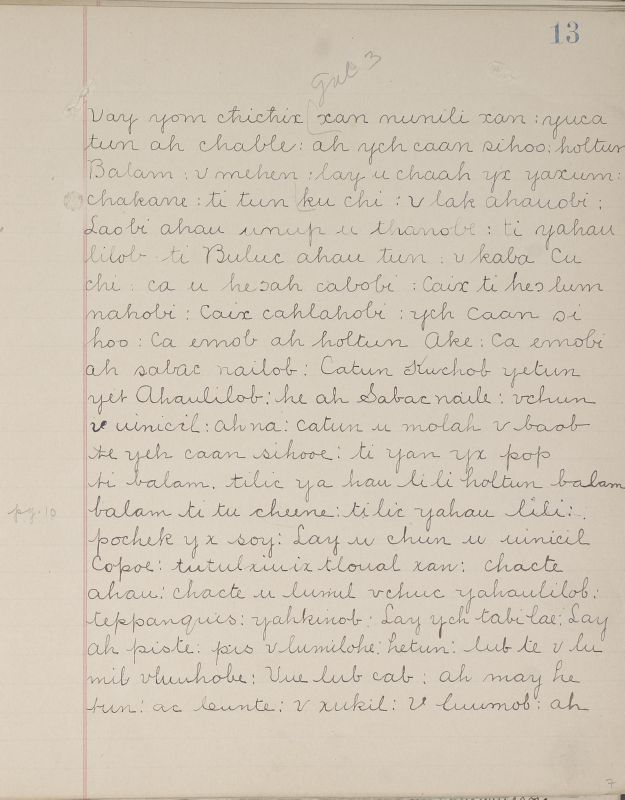 13
gul 3
Vay yom chichix xan nunili xan: yuca
tun ah chable: ah ych caan sihoo: holtun
Balam: v mehen: lay u chaah yx yaxum:
chakane: ti tun ku chi: v lak ahauobi:
Laobi ahau unup u thanobe: ti yahau
lilob ti Buluc ahau tun: v kaba Cu
chi: ca u hesah cabobi: Caix ti hes lum
nahobi: Caix cahlahobi: ych Caan si
hoo: Ca emob ah holtun Ake: Ca emobi
ah sabac nailob: Catun Kuchob yetun
yet Ahaulilob: he ah Sabacnaile: vchun
v uinicil: ahna: catun u molah v baob
te ych caan sihooe: ti yan yx pop
ti balam. tilic ya hau li li holtun balam
balam ti tu cheene: tilic yahau lili:
pg. 10
pochek yx soy: Lay u chun u uinicil
Copoe: tutulxiuix tloual xan: chacte
ahau: chacte u lumil vchuc yahaulilob:
teppanquis: yahkinob: Lay ych tabi lae: Lay
ah piste: pis v lumilohe: hetun: lub te v lu
mil vluuhobe: Vue lub cab: ah may he
tun: ac leunte: v xukil: V luumob: ah
7